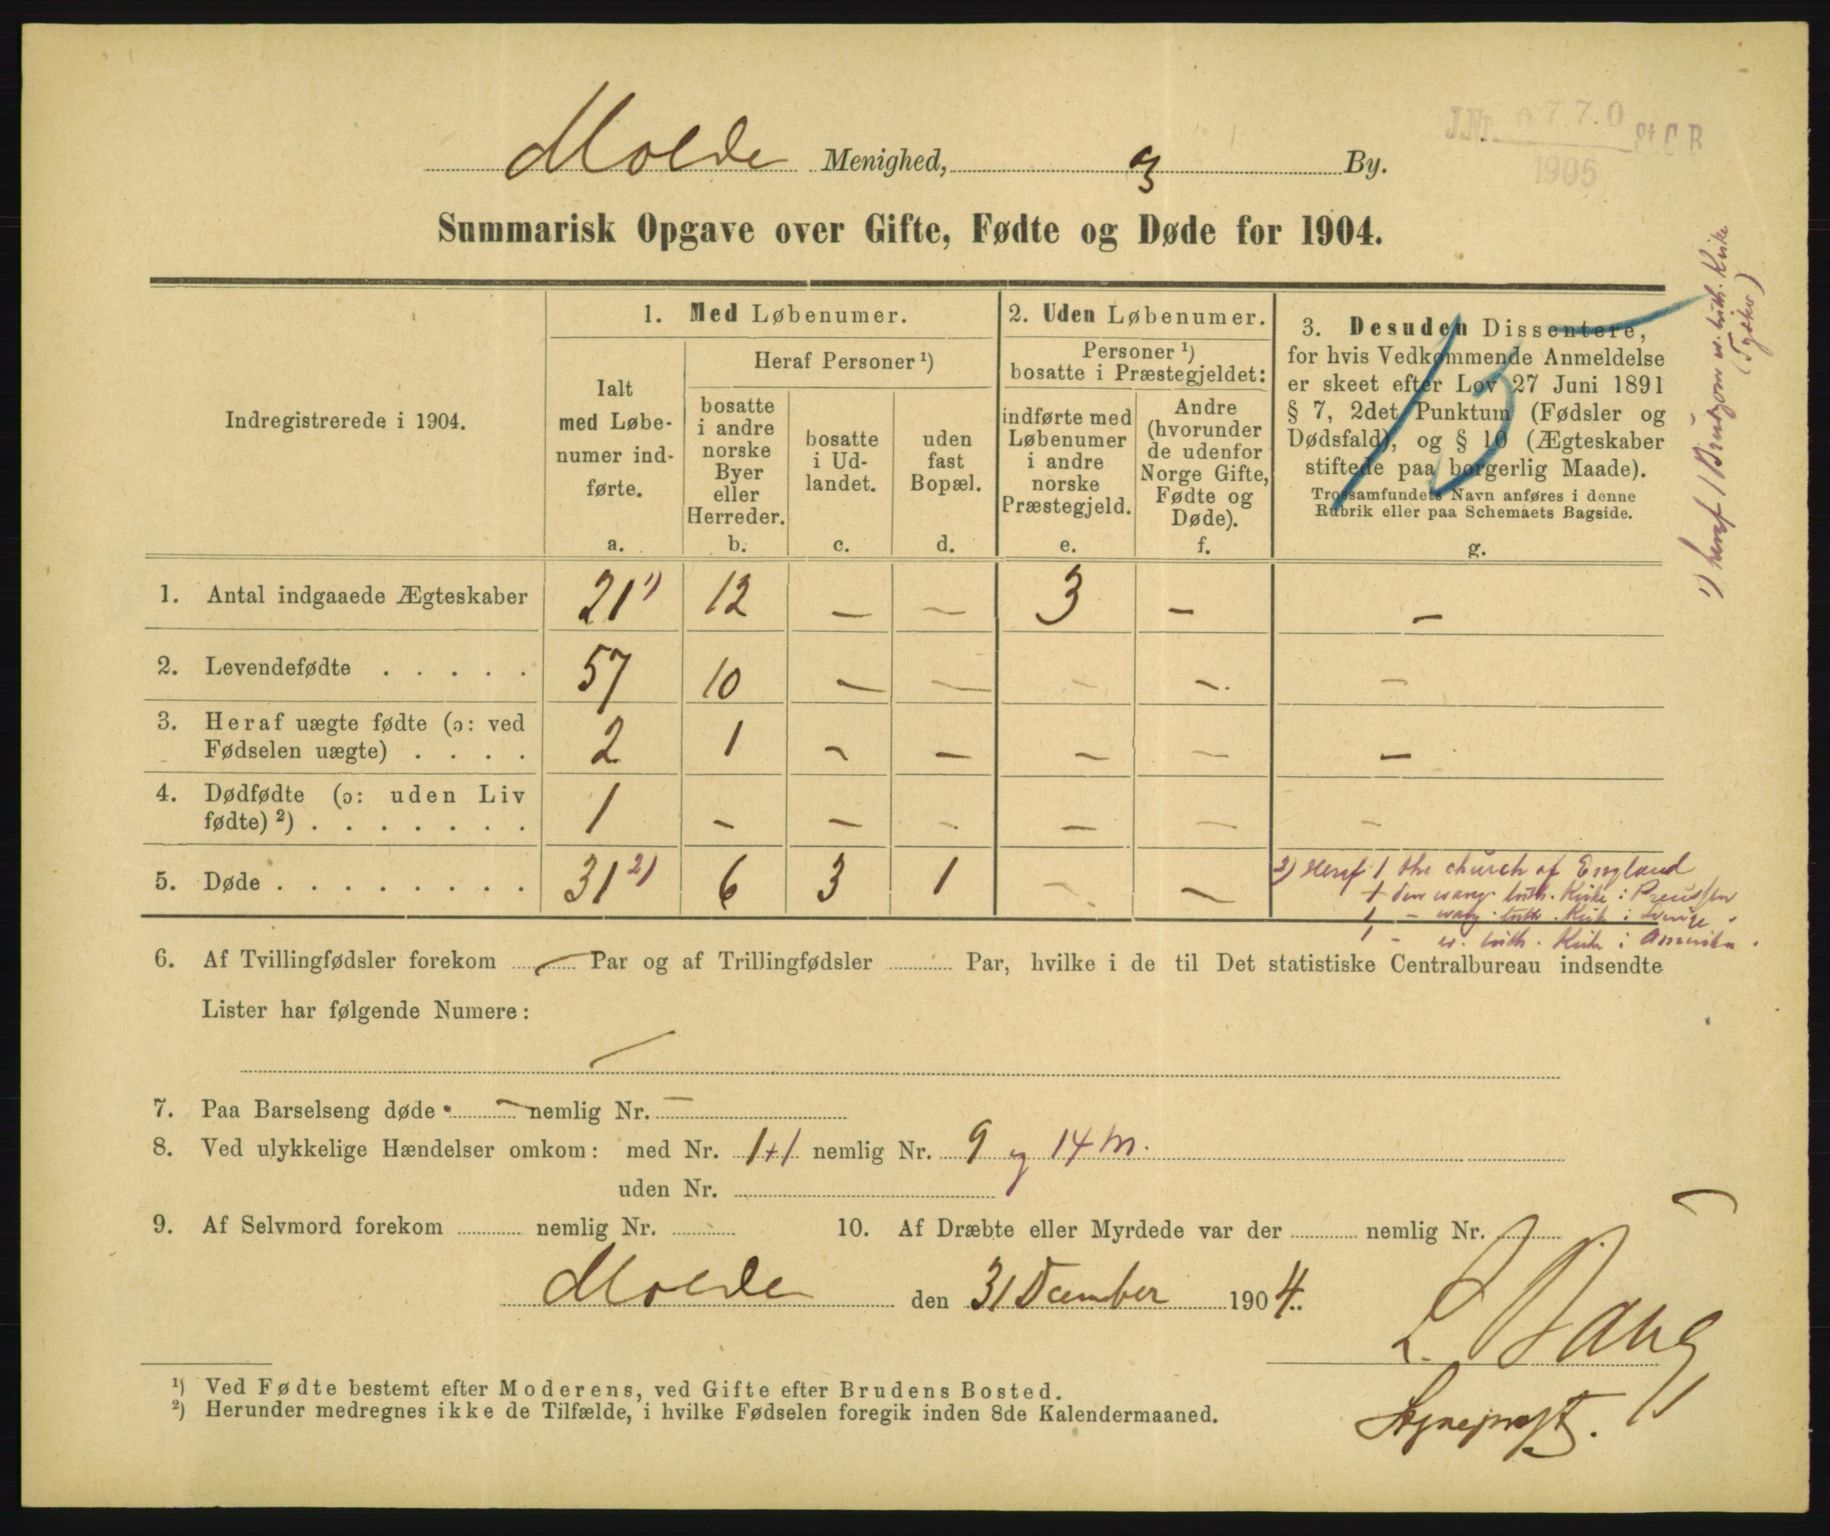 J.Nr. 0770 St.C.B
1905
Molde Menighed, og By.
Summarisk Opgave over Gifte, Fødte og Døde for 1904.
Indregistrerede i 1904.
1. Med Løbenumer.
Ialt
med Løbe-
numer ind-
førte.
a.
Heraf Personer ¹)
bosatte
i andre
norske
Byer
eller
Herreder.
b.
bosatte
i Ud-
landet.
c.
uden
fast
Bopæl.
d.
2. Uden Løbenumer.
Personer ¹)
bosatte i Præstegjeldet:
indførte med
Løbenumer
i andre
norske
Præstegjeld.
e.
Andre
(hvorunder
de udenfor
Norge Gifte,
Fødte og
Døde).
f.
3. Desuden Dissentere,
for hvis Vedkommende Anmeldelse
er skeet efter Lov 27 Juni 1891
§ 7, 2det Punktum (Fødsler og
Dødsfald), og § 10 (Ægteskaber
stiftede paa borgerlig Maade).
Trossamfundets Navn anføres i denne
Rubrik eller paa Schemaets Bagside.
g.
1) heraf 1 Brudgom ev. luth. Kirke
1. Antal indgaaede Ægteskaber 21 ¹) 12 — — 3 — —
2. Levendefødte . . . . . 57 10 — — — — —
3. Heraf uægte fødte (ɔ: ved
Fødselen uægte) . . . . 2 1 — — — — —
4. Dødfødte (ɔ: uden Liv
fødte) ²) . . . . . . . 1 — — — — — —
5. Døde . . . . . . . . 31 ²) 6 3 1 — —
2) Heraf 1 the church of England
1 den evang. luth. Kirke i Preussen
1 — evang. luth. Kirk i Sverige
1 — ev. luth. Kirke i Amerika.
6. Af Tvillingfødsler forekom — Par og af Trillingfødsler Par, hvilke i de til Det statistiske Centralbureau indsendte
Lister har følgende Numere:
—
7. Paa Barselseng døde — nemlig Nr. —
8. Ved ulykkelige Hændelser omkom: med Nr. 1+1 nemlig Nr. 9 og 14 m.
uden Nr.
9. Af Selvmord forekom nemlig Nr. 10. Af Dræbte eller Myrdede var der nemlig Nr.
Molde den 31 December 1904.
L. Bang
Sogneprest.
¹) Ved Fødte bestemt efter Moderens, ved Gifte efter Brudens Bosted.
²) Herunder medregnes ikke de Tilfælde, i hvilke Fødselen foregik inden 8de Kalendermaaned.